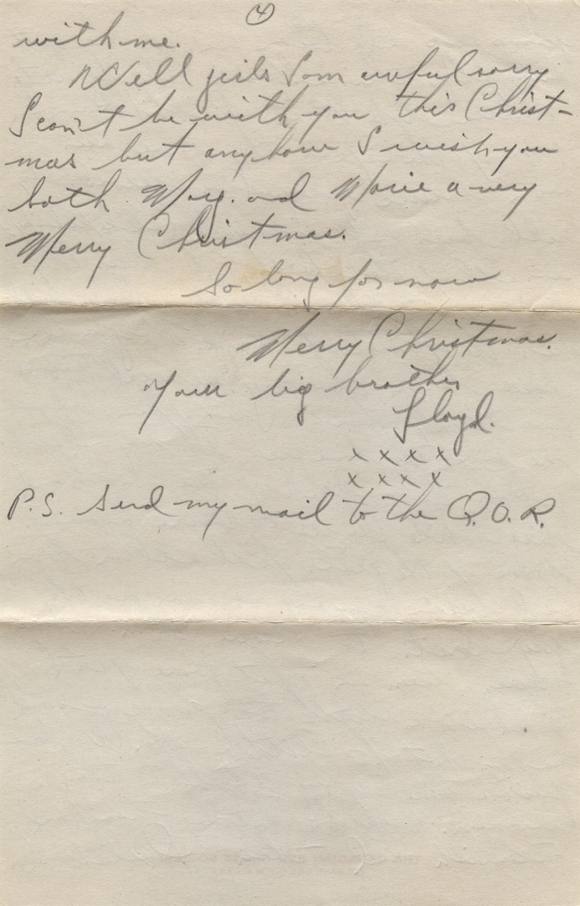 4
with me.
Well girls I am awful sorry
I can't be with you this Christ-
mas but anyhow I wish you
both May. and Marie a very
Merry Christmas.
So long for now
Merry Christmas.
Your big brother
Lloyd.
x x x x
x x x x
P.S. Send my mail to the Q.O.R.